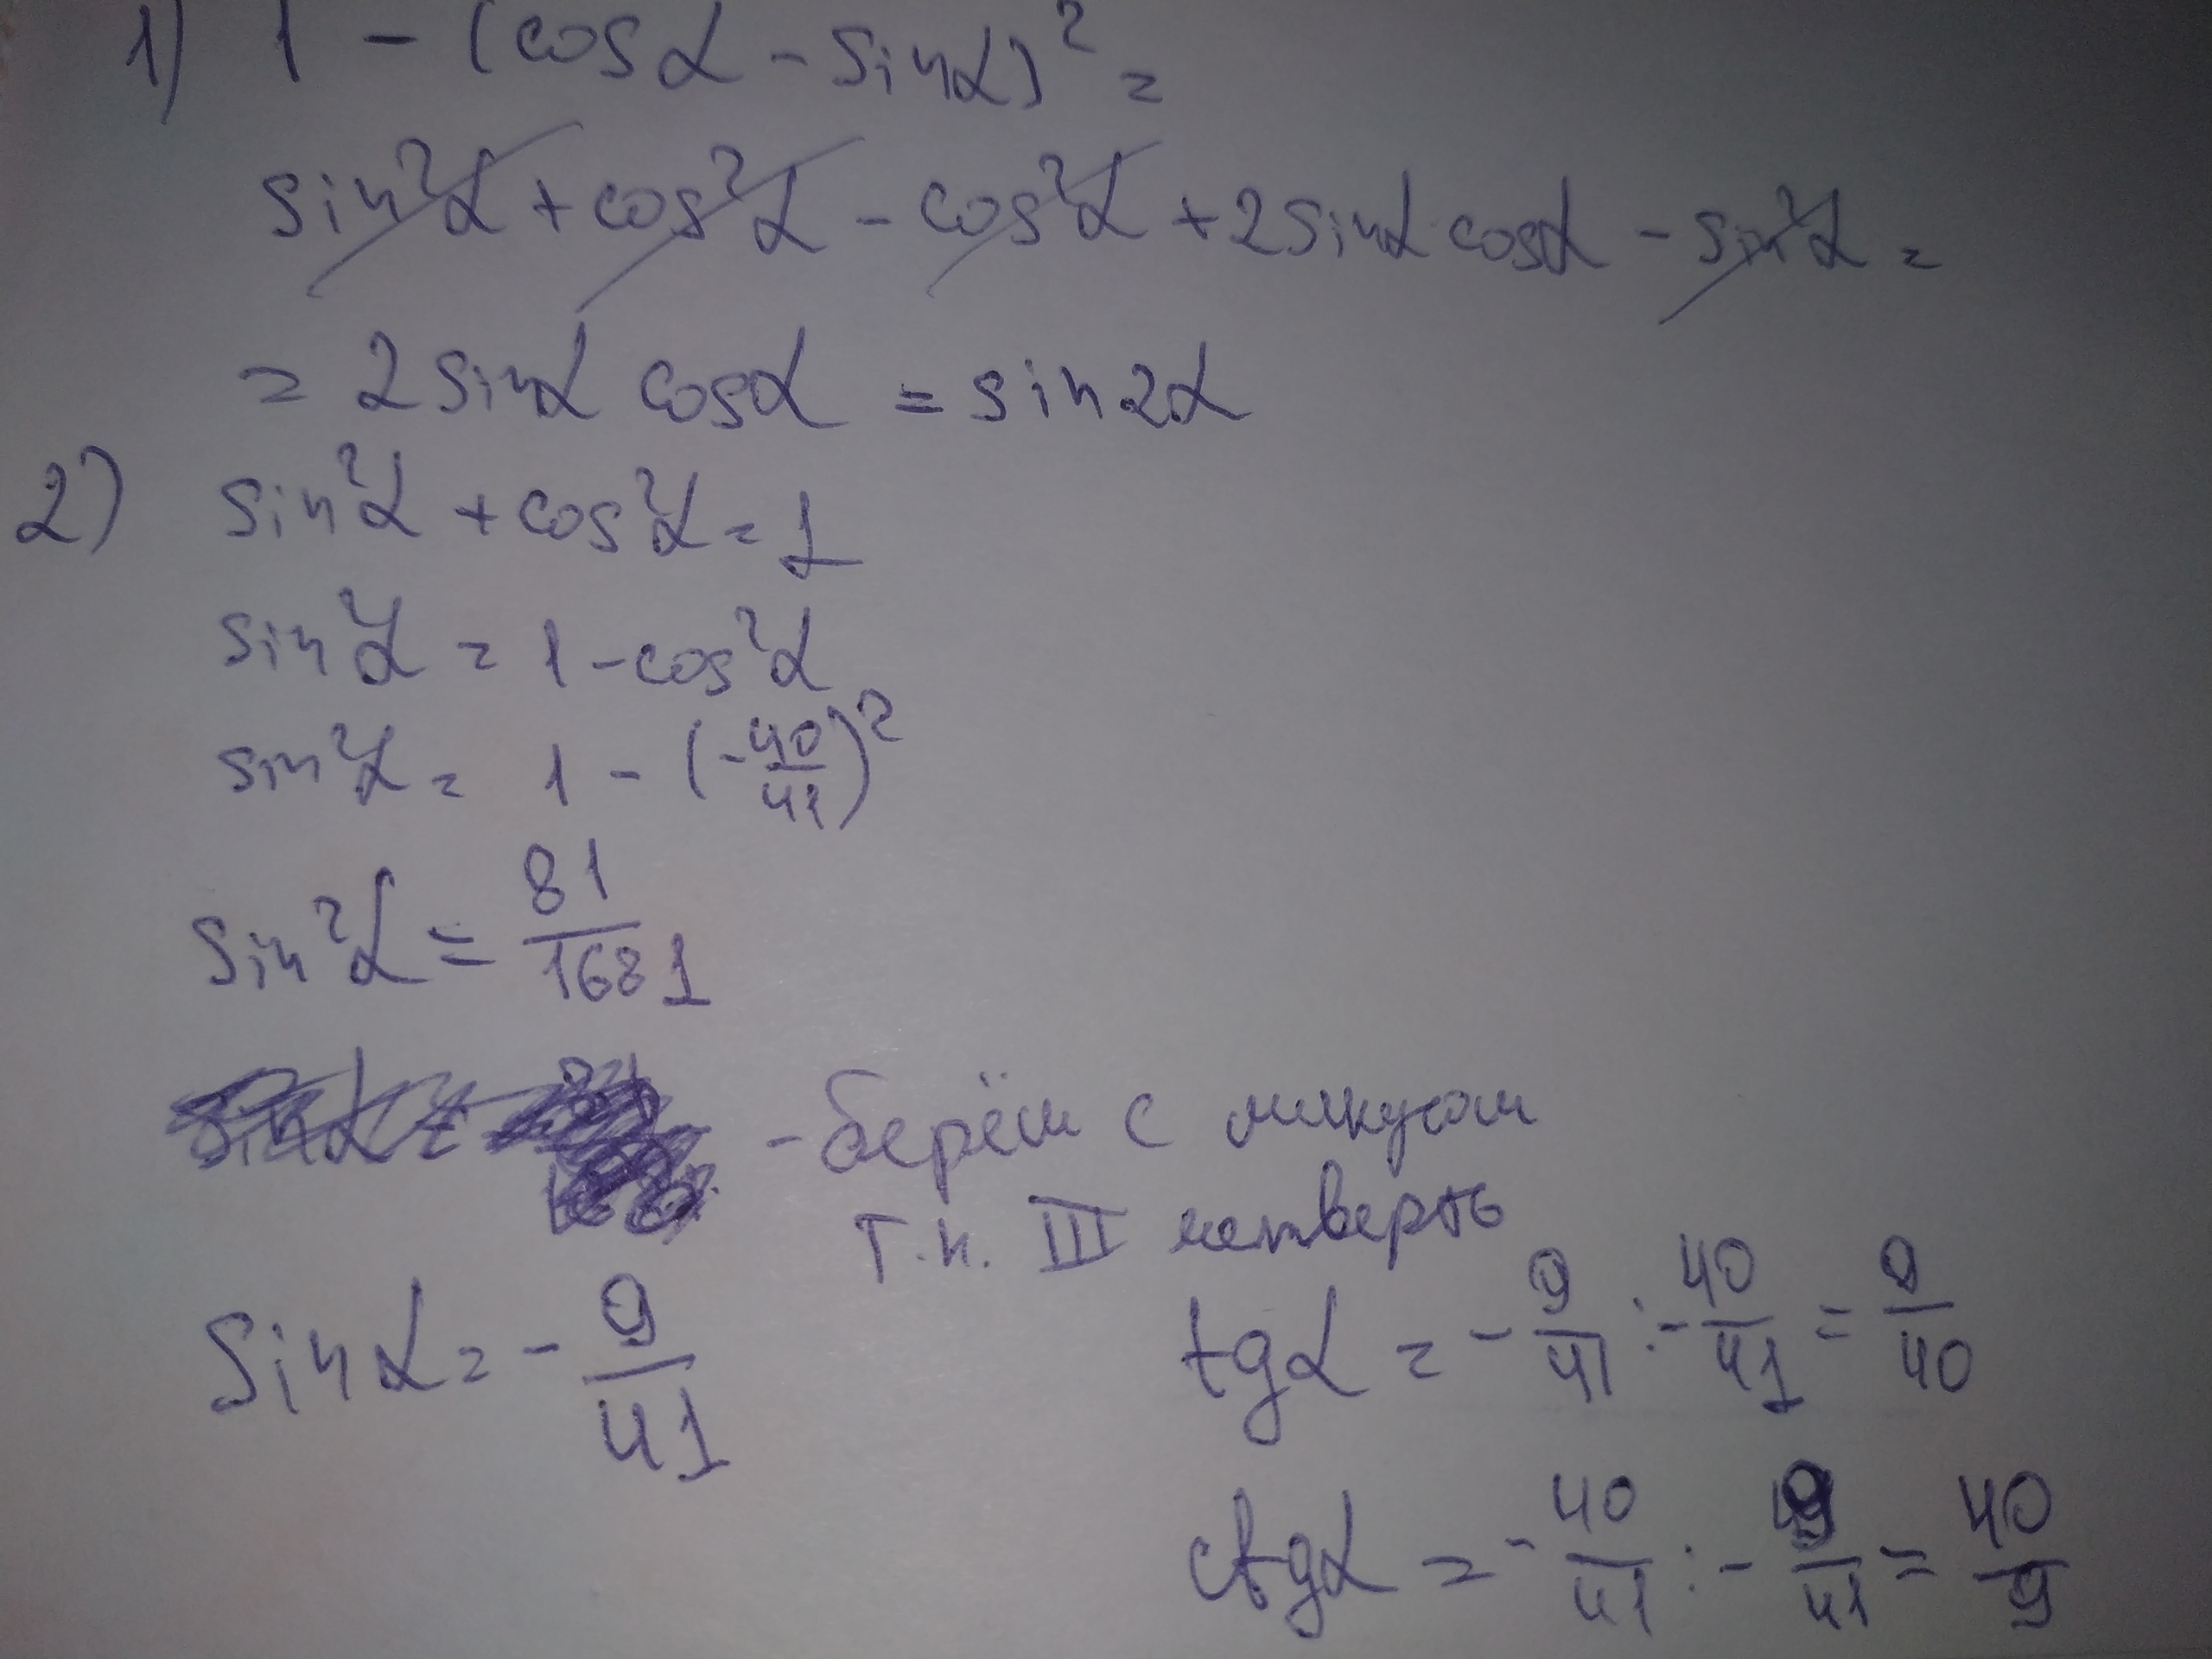 1) 1 - (cos α - sin α)² =
sin²α + cos²α - cos²α + 2 sin α cos α - sin²α =
= 2 sin α cos α = sin 2α
2) sin²α + cos²α = 1
sin²α = 1 - cos²α
sin²α = 1 - (-40/41)²
sin²α = 81/1681
- берём с минусом
т.к. III четверть
sin α = - 9/41
tg α = - 9/41 : - 40/41 = 9/40
ctg α = - 40/41 : - 9/41 = 40/9